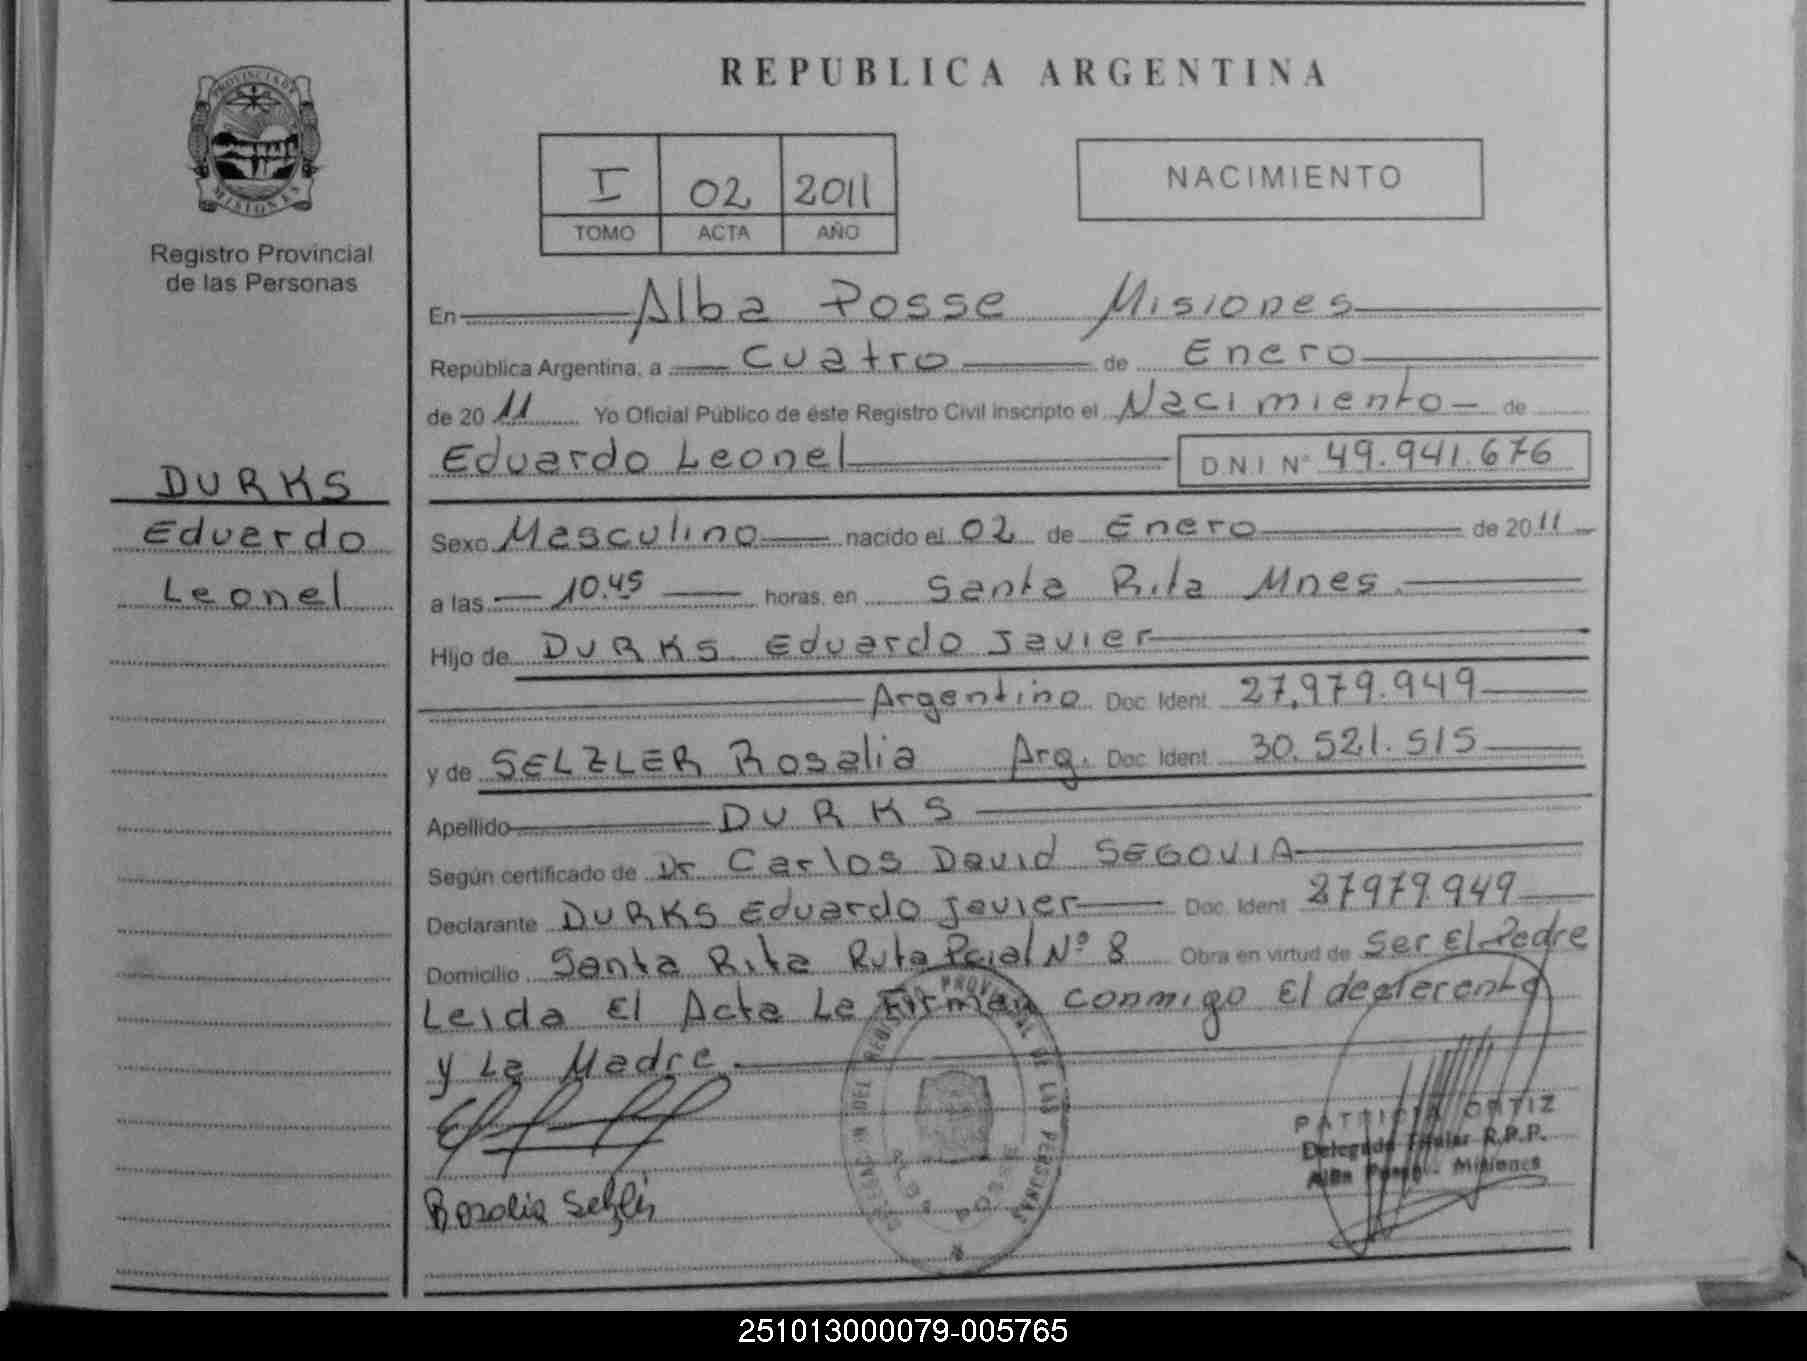 PROVINCIA DE
MISIONES
Registro Provincial
de las Personas
DURKS
Eduardo
Leonel
REPUBLICA ARGENTINA
I 02 2011
TOMO ACTA AÑO
NACIMIENTO
En Alba Posse Misiones
República Argentina, a Cuatro de Enero
de 2011 Yo Oficial Público de éste Registro Civil inscripto el Nacimiento de
Eduardo Leonel D.N.I Nº 49.941.676
Sexo Masculino nacido el 02 de Enero de 2011
a las 10.45 horas, en Santa Rita Mnes.
Hijo de DURKS Eduardo Javier
Argentino Doc. Ident. 27.979.949
y de SELZLER Rosalia Arg. Doc. Ident. 30.521.515
Apellido DURKS
Según certificado de Dr Carlos David SEGOVIA
Declarante DURKS Eduardo Javier Doc. Ident. 27979.949
Domicilio Santa Rita Ruta Pcial Nº 8 Obra en virtud de Ser El Padre
Leida El Acta La Firman conmigo El
y La Madre.
Rosalia Selzler
DELEGACION DEL REGISTRO PROVINCIAL DE LAS PERSONAS
ALBA POSSE
PATRICIA ORTIZ
Delegada Titular R.P.P.
Alba Posse - Misiones
251013000079-005765